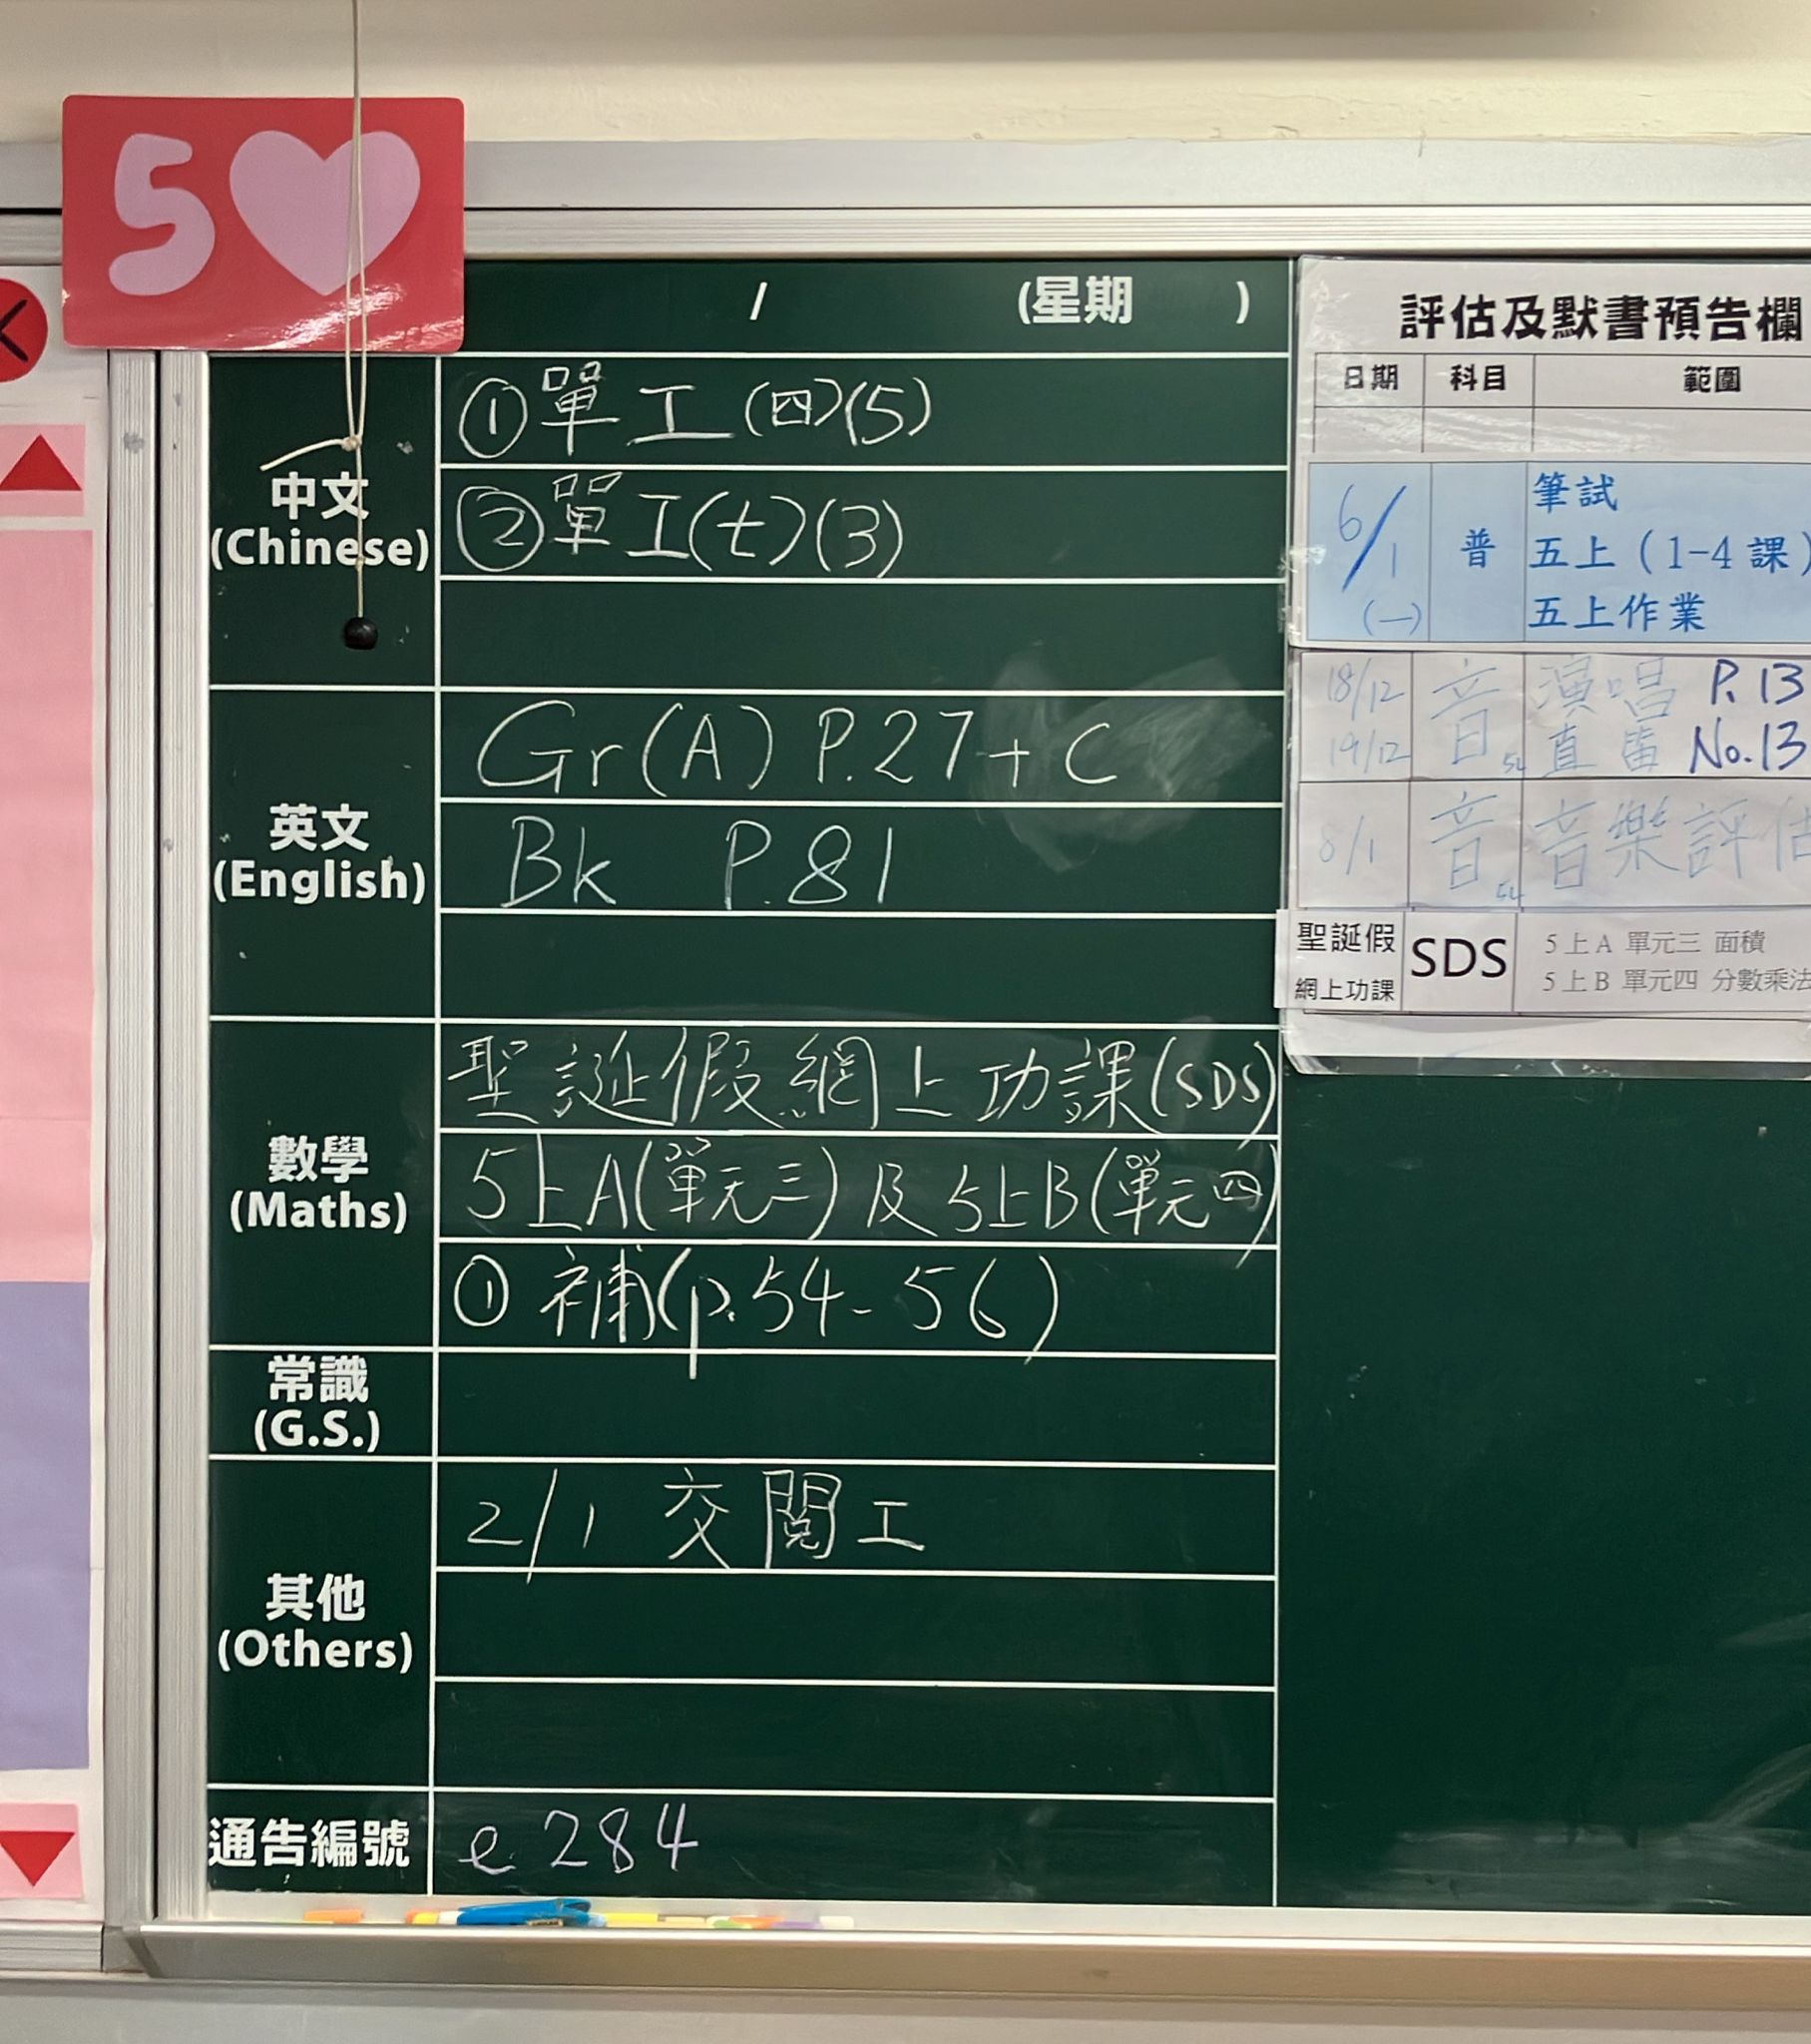 5
/ (星期 )
中文
(Chinese)
①單工(四)(5)
②單工(七)(3)
英文
(English)
Gr(A) P.27+C
Bk P.81
數學
(Maths)
聖誕假網上功課(SDS)
5上A(單元三)及5上B(單元四)
① 補(p.54-56)
常識
(G.S.)
其他
(Others)
2/1 交閱工
通告編號
e 284
評估及默書預告欄
日期 科目 範圍
6/1 (一) 普
筆試
五上(1-4課)
五上作業
18/12 音 演唱 P.13
19/12 直笛 No.13
8/1 音 音樂評估
聖誕假 SDS 5上A 單元三 面積
網上功課 5上B 單元四 分數乘法